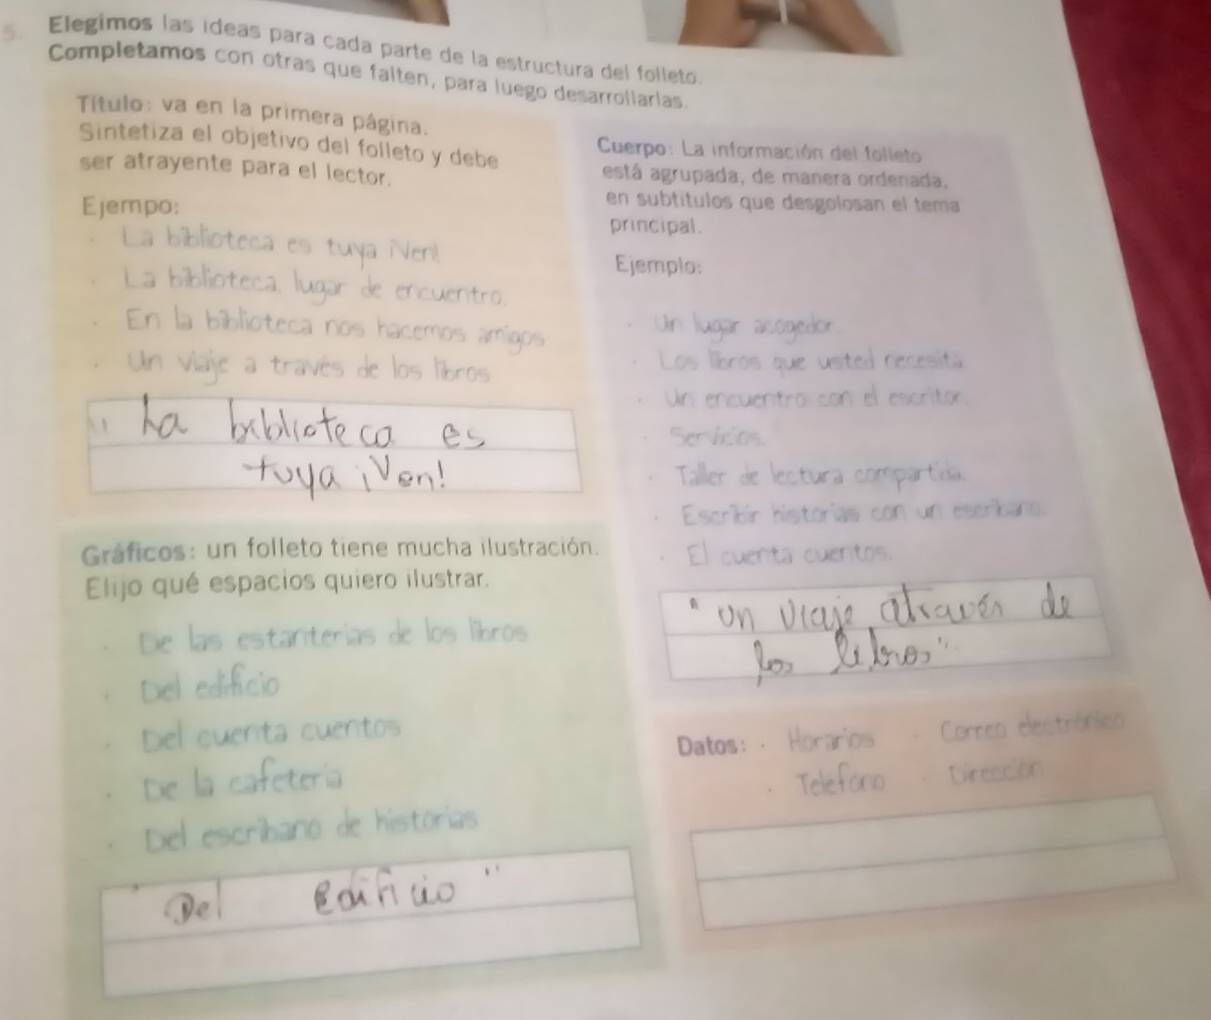 5. Elegimos las ideas para cada parte de la estructura del folleto.
Completamos con otras que falten, para luego desarrollarlas.
Título: va en la primera página.
Sintetiza el objetivo del folleto y debe
ser atrayente para el lector.
Ejempo:
· La biblioteca es tuya ¡Ven!
· La biblioteca, lugar de encuentro.
· En la biblioteca nos hacemos amigos
· Un viaje a través de los libros
La biblioteca es
tuya ¡Ven!
Gráficos: un folleto tiene mucha ilustración.
Elijo qué espacios quiero ilustrar.
· De las estanterías de los libros
· Del edificio
· Del cuenta cuentos
· De la cafetería
· Del escribano de historias
"Del edificio"
Cuerpo: La información del folleto
está agrupada, de manera ordenada,
en subtítulos que desgolosan el tema
principal.
Ejemplo:
· Un lugar acogedor
· Los libros que usted necesita
· Un encuentro con el escritor.
· Servicios.
· Taller de lectura compartida.
· Escribir historias con un escribano.
· El cuenta cuentos.
"un viaje através de
los libros"
Datos: · Horarios · Correo electrónico
· Teléfono · Dirección